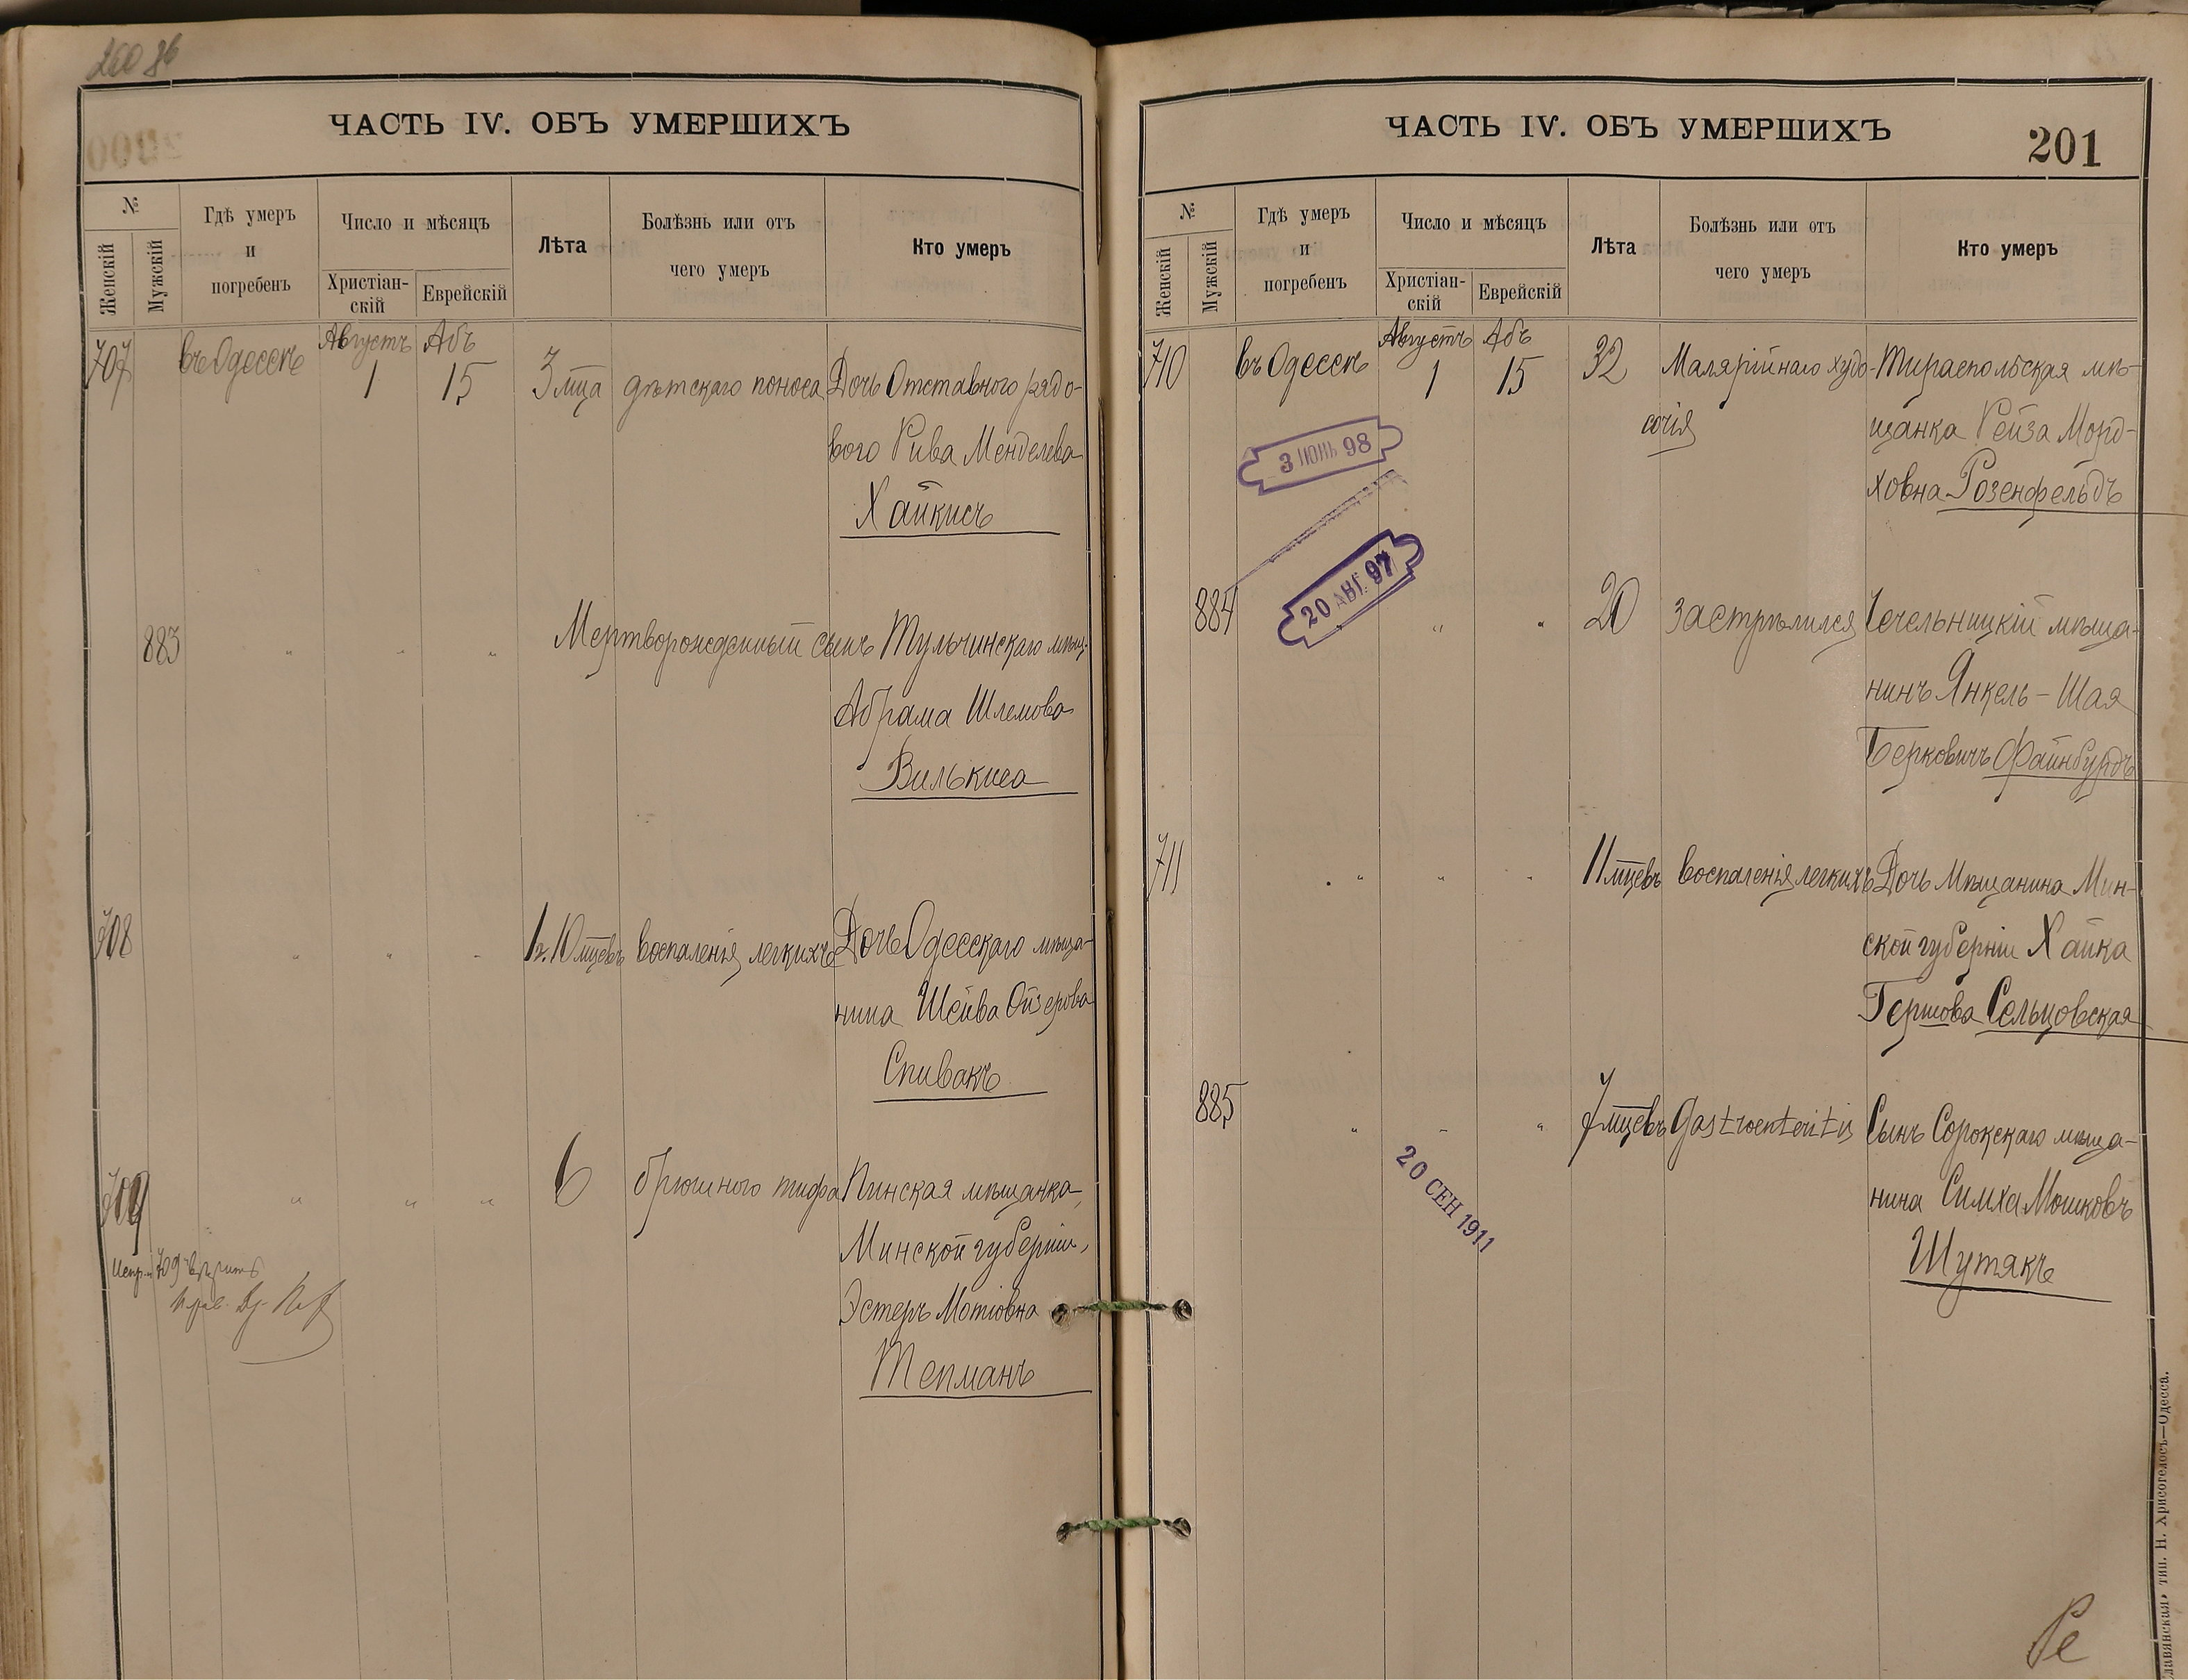 ЧАСТЬ IV. ОБЪ УМЕРШИХЪ
№
Женскій
Мужскій
Гдѣ умеръ
и
погребенъ
Число и мѣсяцъ
Христіан-
скій
Еврейскій
Лѣта
Болѣзнь или отъ
чего умеръ
Кто умеръ
Августъ Абъ
707 въ Одессѣ 1 15 3 мца дѣтскаго поноса Дочь Отставного рядо-
вого Рива Менделева
Хайкисъ
883 " " " Мертворожденный сынъ Тульчинскаго мѣщ.
Абрама Шлемова
Вилькиса
708 " " " 1 г. 10 мцевъ воспаленія легкихъ Дочь Одесскаго мѣща-
нина Шейва Ойзерова
Спивакъ
709 " " " 6 брюшного тифа Пинская мѣщанка,
Минской губерніи,
Эстеръ Мотіовна
Тепманъ
709 вѣрить
ЧАСТЬ IV. ОБЪ УМЕРШИХЪ
201
№
Женскій
Мужскій
Гдѣ умеръ
и
погребенъ
Число и мѣсяцъ
Христіан-
скій
Еврейскій
Лѣта
Болѣзнь или отъ
чего умеръ
Кто умеръ
Августъ Абъ
710 въ Одессѣ 1 15 32 Малярійнаго худо- Тираспольская мѣ-
сочія щанка Рейза Морд-
ховна Розенфельдъ
3 ІЮНЬ 98
20 АВГ. 97
884 " " 20 застрѣлился Чечельницкій мѣща-
нинъ Янкель-Шая
Берковичъ Файнбурдъ
711 " " " 11 мцевъ воспаленія легкихъ Дочь Мѣщанина Мин-
ской губерніи Хайка
Гершова Сельцовская
885 " " " 7 мцевъ Gastroenteritis Сынъ Сорокскаго мѣща-
нина Симха Мошковъ
Шутякъ
20 СЕН 1911
Славянская» тип. Н. Хрисогелосъ—Одесса.